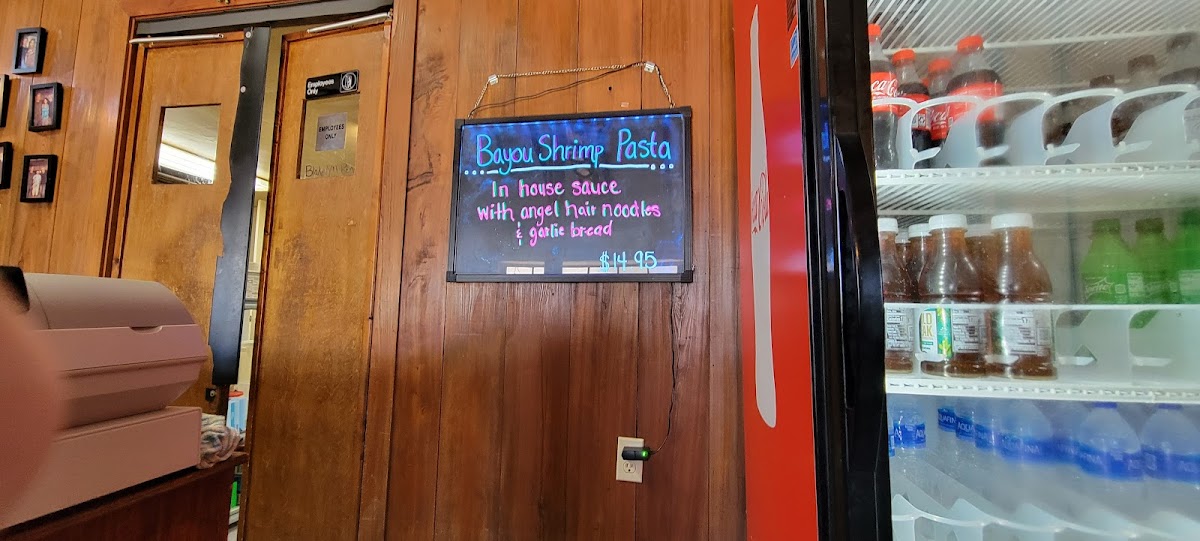 Employees
Only
EMPLOYEES
ONLY
Bayou Shrimp Pasta
In house sauce
with angel hair noodles
& garlic bread
$14.95